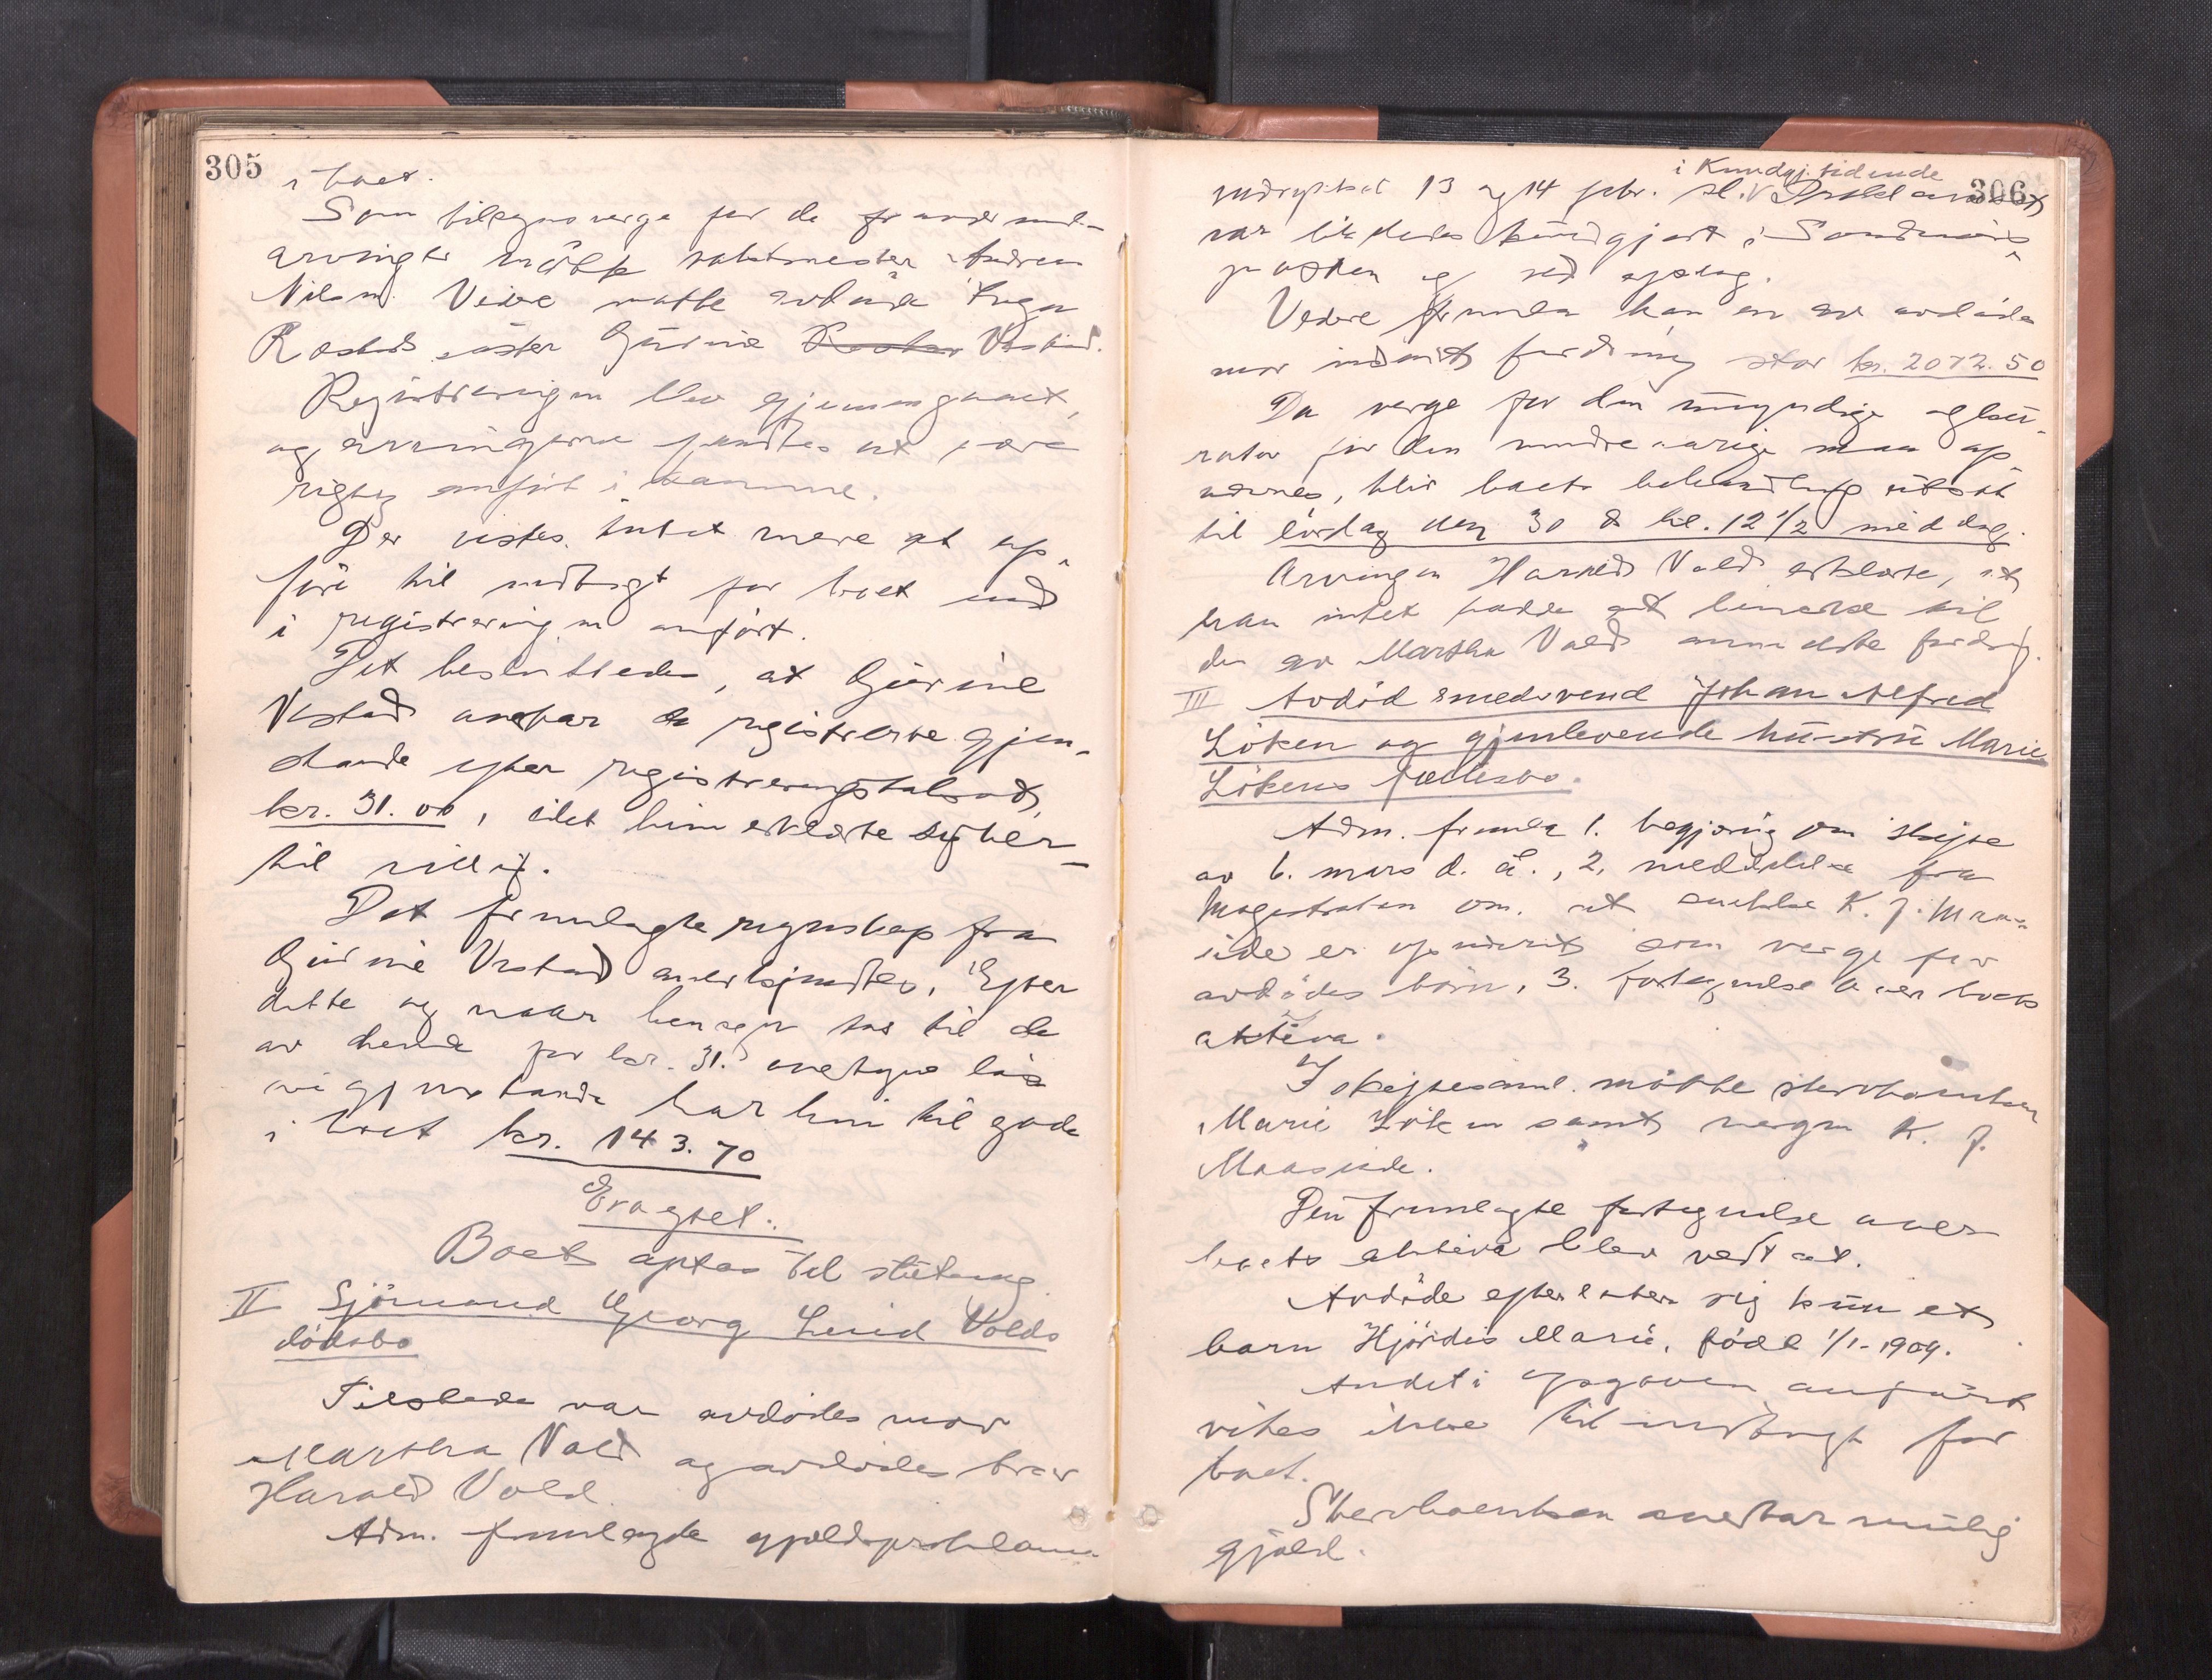 305
i boet.
Som tilsynsverge for de fraværende
arvinger møtte vaktmester Andreas
Nilsen. Videre møtte avdøde Inga
Rostads søster Gurine Vestad.
Registreringen blev gjennemgaaet,
og arvingerne fandtes at være
rigtig anført i samme.
Der vistes intet mere at op-
føre til indtægt for boet end
i registreringen anført.
Det besluttedes, at Gurine
Vestad overtar de registrerte gjen-
stande efter registreringstakst,
kr. 31.00, idet hun erklærte sig her-
til villig.
Det fremlagte regnskap fra
Gurine Vestad anerkjendtes. Efter
dette og naar hensyn tas til de
av hende for kr. 31. overtagne løs-
øregjenstande har hun til gode
i boet kr. 143.70
Eragtet:
Boet optas til slutning
II Sjømand Georg Leind Volds
dødsbo
Tilstede var avdødes mor
Martha Vold og avdødes bror
Harald Vold.
Adm. fremlagde gjældsproklama
306
i Kundgj. tidende
indrykket 13 og 14 febr. sl. Proklamaet
var likeledes kundgjort i Søndmørs-
posten og ved opslag.
Videre fremla han en av avdødes
mor indsendt fordring stor kr. 2072.50
Da verge for den umyndige og ku-
rator for den mindreaarige maa op-
nævnes, blir boets behandling utsat
til lørdag den 30 ds kl. 12 1/2 middag.
Arvingen Harald Vold erklærte, at
han intet hadde at bemerke til
den av Martha Vold anmeldte fordring.
III Avdød smedsvend Johan Alfred
Løken og gjenlevende hustru Marie
Løkens fællesbo.
Adm. fremla 1. begjæring om skifte
av 6. mars d. å., 2, meddelelse fra
Magistraten om at snekker K. J. Maa-
seide er opnævnt som verge for
avdødes barn, 3. fortegnelse over boets
aktiva.
I skiftesaml. møtte stervboenken
Marie Løken samt vergen K. J.
Maaseide.
Den fremlagte fortegnelse over
boets aktiva blev vedtat.
Avdøde efterlater sig kun et
barn Hjørdis Marie, født 1/1-1909.
Andet i opgaven anført
vites ikke til indtægt for
boet.
Stervboenken overtar mulig
gjæld.